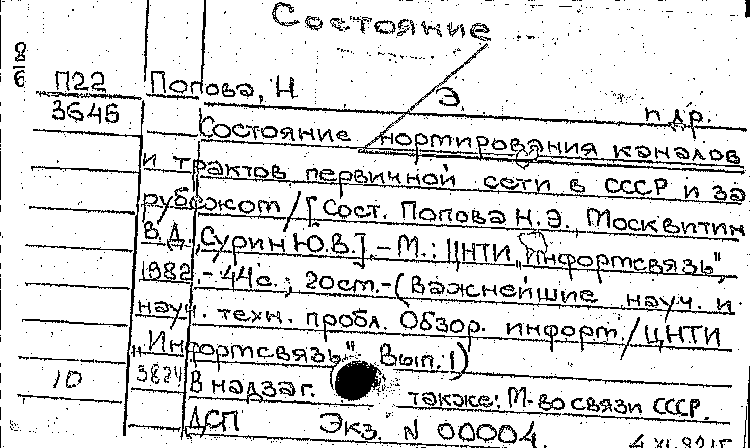 Состояние
819
П22 Попова, Н. Э. и др.
3645 Состояние нормирования каналов
и трактов первичной сети в СССР и за
рубежом / [Сост. Попова Н.Э., Москвитин
В.Д., Сурин Ю.В.]. - М.: ЦНТИ „Информсвязь",
1982. - 44с.; 20см. - (Важнейшие науч. и
науч. техн. пробл. Обзор. информ. / ЦНТИ
„Информсвязь" Вып. 1)
10 3824 В надзаг. также: М-во связи СССР.
ДСП Экз. N 00004.